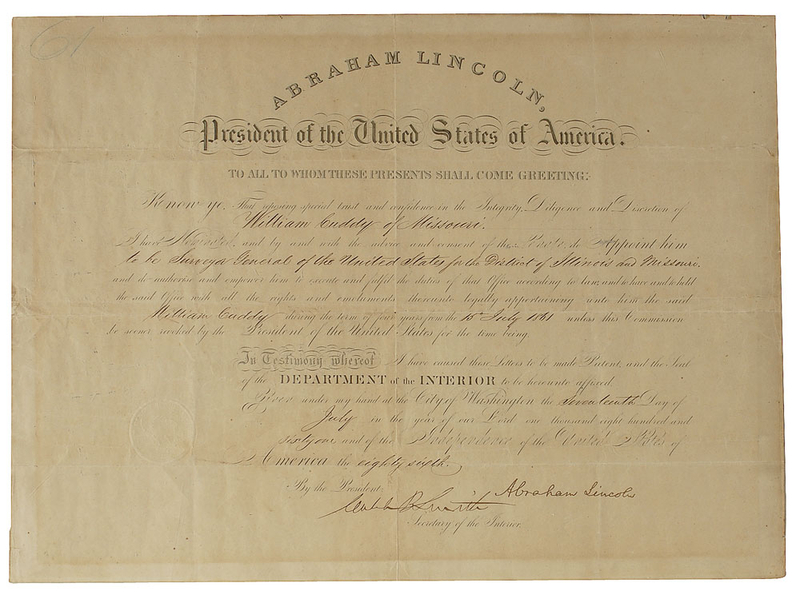 61
ABRAHAM LINCOLN,
President of the United States of America.
TO ALL TO WHOM THESE PRESENTS SHALL COME GREETING:
Know ye, That reposing special trust and confidence in the Integrity, Diligence and Discretion of
William Cuddy of Missouri.
I have Nominated, and by and with the advice and consent of the Senate, do Appoint him
to be Surveyor General of the United States for the District of Illinois and Missouri,
and do authorise and empower him to execute and fulfil the duties of that Office according to law; and to have and to hold
the said Office with all the rights and emoluments thereunto legally appertaining unto him the said
William Cuddy during the term of four years from the 15th July 1861 unless this Commission
be sooner revoked by the President of the United States for the time being.
In Testimony whereof I have caused these Letters to be made Patent, and the Seal
of the DEPARTMENT of the INTERIOR to be hereunto affixed.
Given under my hand at the City of Washington the Seventeenth Day of
July in the year of our Lord one thousand eight hundred and
sixty one and of the Independence of the United States of
America the eighty sixth.
By the President,
Caleb B Smith Abraham Lincoln
Secretary of the Interior.